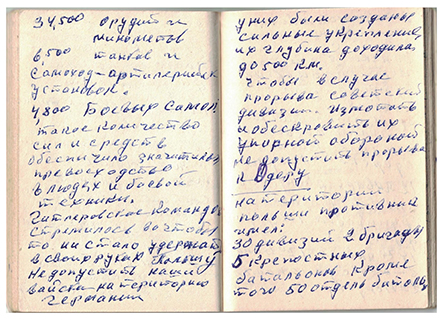 34,500 орудий и
минометов
6,500 танков и
самоход-артилерийск
установок.
4,800 Боевых самол.
такое количество
сил и средств
обеспичило значительн
превосходство
в людях и боевой
технике.
Гитлеровское командо
стремилось во чтобы
то ни стало удержать
в своих руках Польшу
недопустить наши
войски на територию
Германии
у них были созданы
сильные укрепления,
их глубина доходила
до 500 км.
Чтобы в случае
прорыва советской
дивизии. Измотать
и обескровить их
упорной обороной
не допустить прорыва
к Одеру
на територии
польши противник
имел:
30 дивизий 2 бригады
5 Крепостных
батальонов Кроме
того 50 отдель батольо